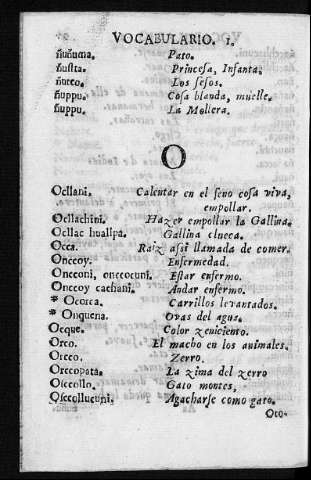 VOCABULARIO. 1.
ñuñuma. Pato.
ñusta. Princesa, Infanta.
ñucco. Los sesos.
ñuppu. Cosa blanda, muelle.
ñuppu. La Mollera.
O
Ocllani. Calentar en el seno cosa viva,
empollar.
Ocllachini. Hazer empollar la Gallina.
Ocllac huallpa. Gallina clueca.
Occa. Raiz assi llamada de comer.
Onccoy. Enfermedad.
Oncconi, onccocuni. Estar enfermo.
Onccoy cachani. Andar enfermo.
* Ococca. Carrillos levantados.
* Onquena. Ovas del agua.
Ocque. Color zeniciento.
Orco. El macho en los animales.
Orcco. Zerro.
Orccopata. La zima del zerro
Osccollo. Gato montes,
Osccollucuni. Agacharse como gato.
Oto-